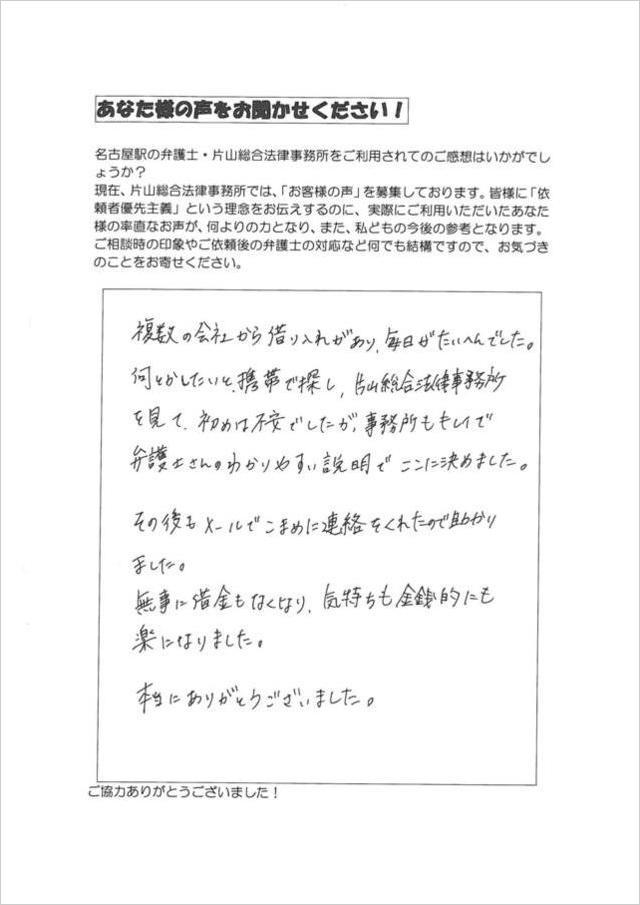 あなた様の声をお聞かせください！
名古屋駅の弁護士・片山総合法律事務所をご利用されてのご感想はいかがでし
ょうか？
現在、片山総合法律事務所では、「お客様の声」を募集しております。皆様に「依
頼者優先主義」という理念をお伝えするのに、実際にご利用いただいたあなた
様の率直なお声が、何よりの力となり、また、私どもの今後の参考となります。
ご相談時の印象やご依頼後の弁護士の対応など何でも結構ですので、お気づき
のことをお寄せください。
複数の会社から借り入れがあり、毎日がたいへんでした。
何とかしたいと、携帯で探し、片山総合法律事務所
を見て、初めは不安でしたが、事務所もキレイで
弁護士さんのわかりやすい説明でここに決めました。
その後もメールでこまめに連絡をくれたので助かり
ました。
無事に借金もなくなり、気持ちも金銭的にも
楽になりました。
本当にありがとうございました。
ご協力ありがとうございました！